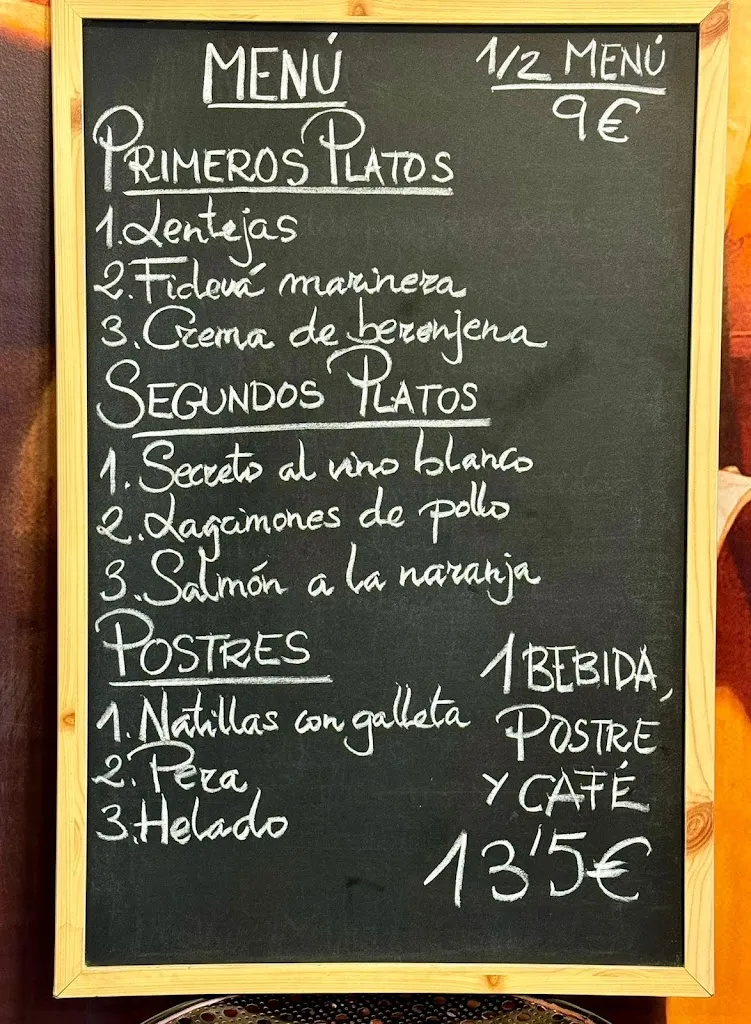 MENÚ
1/2 MENÚ
9€
PRIMEROS PLATOS
1. Lentejas
2. Fideuá marinera
3. Crema de berenjena
SEGUNDOS PLATOS
1. Secreto al vino blanco
2. Lagrimones de pollo
3. Salmón a la naranja
POSTRES
1. Natillas con galleta
2. Pera
3. Helado
1 BEBIDA,
POSTRE
Y CAFÉ
13'5€